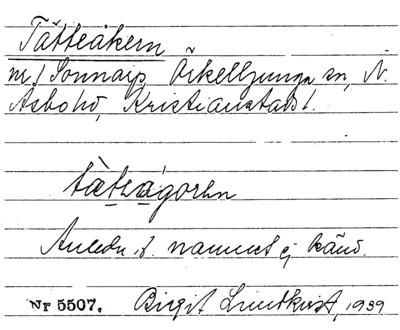 Tåtteåkern
nr 1 Sonnarp Örkelljunga sn, N.
Åsbo hd, Kristianstads l.
Anledn. t. namnet ej känd.
Nr 5507. Birgit Lundkvist, 1939